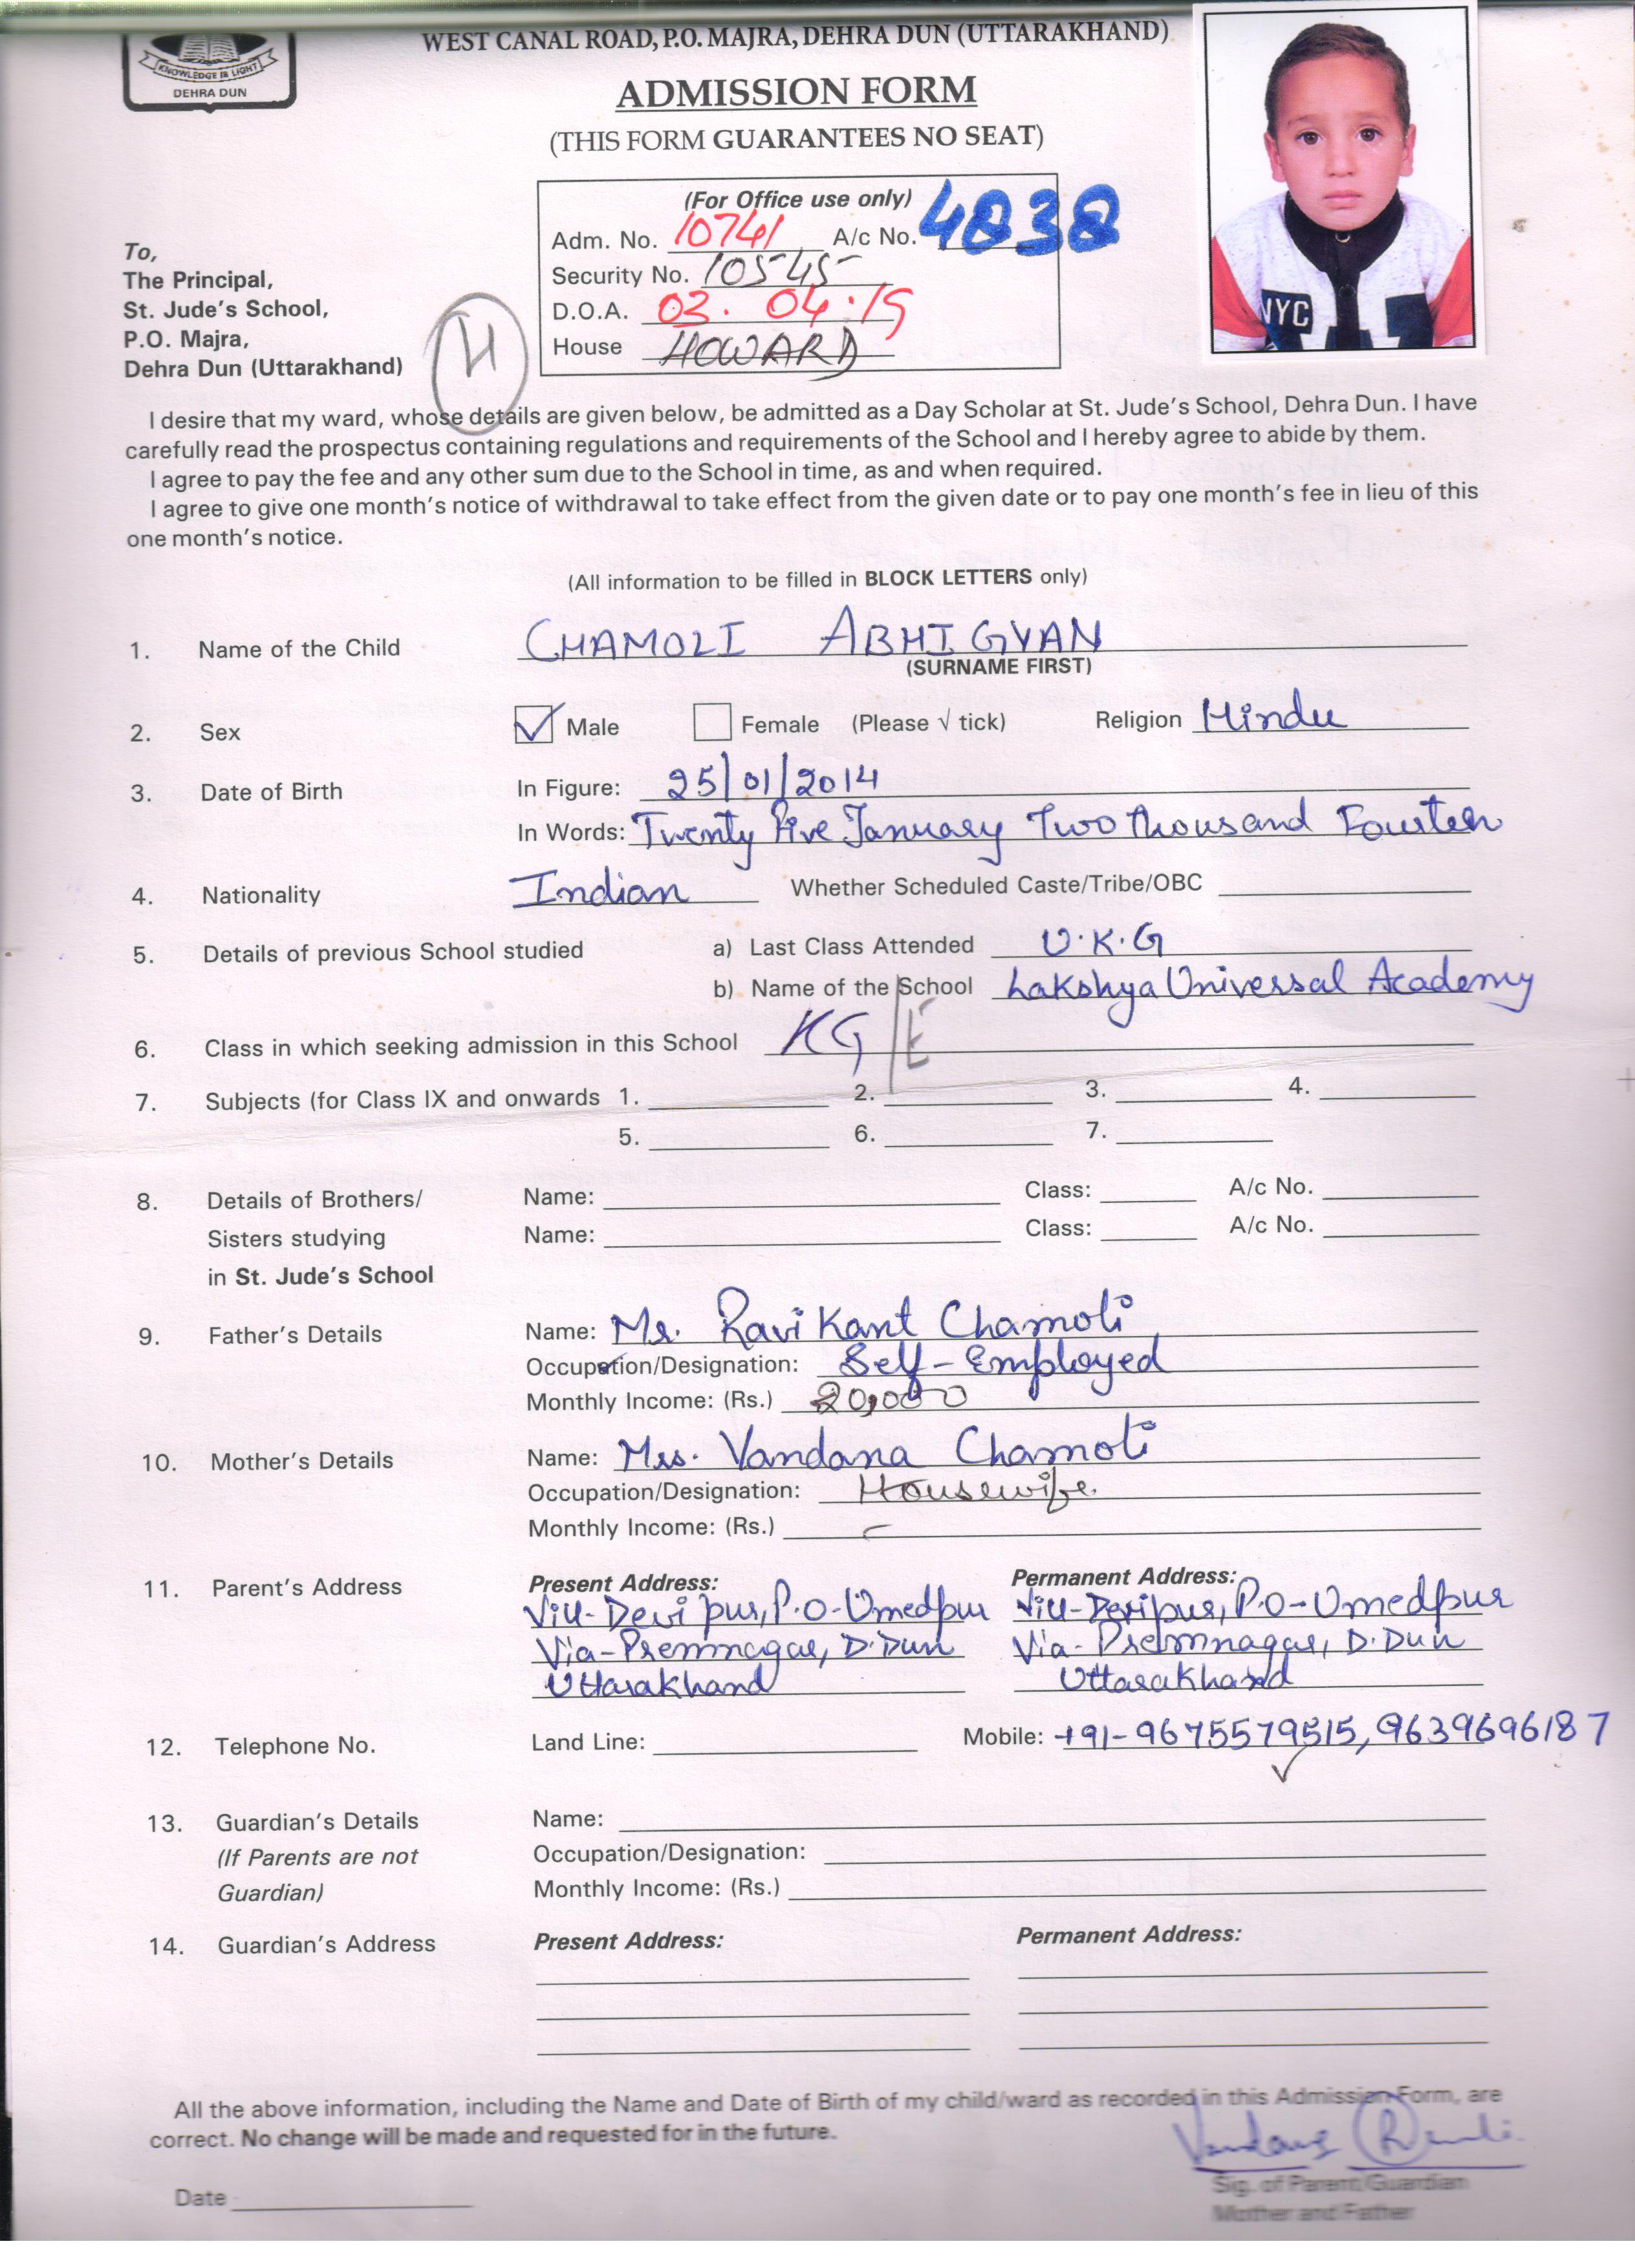 KNOWLEDGE IS LIGHT
DEHRA DUN
WEST CANAL ROAD, P.O. MAJRA, DEHRA DUN (UTTARAKHAND)
ADMISSION FORM
(THIS FORM GUARANTEES NO SEAT)
(For Office use only)
Adm. No. 10741 A/c No. 4838
Security No. 10545
D.O.A. 03.04.19
House HOWARD
To,
The Principal,
St. Jude's School,
P.O. Majra,
Dehra Dun (Uttarakhand)
H
NYC
I desire that my ward, whose details are given below, be admitted as a Day Scholar at St. Jude's School, Dehra Dun. I have
carefully read the prospectus containing regulations and requirements of the School and I hereby agree to abide by them.
I agree to pay the fee and any other sum due to the School in time, as and when required.
I agree to give one month's notice of withdrawal to take effect from the given date or to pay one month's fee in lieu of this
one month's notice.
(All information to be filled in BLOCK LETTERS only)
1. Name of the Child CHAMOLI ABHIGYAN
(SURNAME FIRST)
2. Sex Male Female (Please √ tick) Religion Hindu
3. Date of Birth In Figure: 25/01/2014
In Words: Twenty Five January Two thousand Fourteen
4. Nationality Indian Whether Scheduled Caste/Tribe/OBC
5. Details of previous School studied a) Last Class Attended U.K.G
b) Name of the School Lakshya Universal Academy
6. Class in which seeking admission in this School KG/E
7. Subjects (for Class IX and onwards 1. 2. 3. 4.
5. 6. 7.
8. Details of Brothers/ Name: Class: A/c No.
Sisters studying Name: Class: A/c No.
in St. Jude's School
9. Father's Details Name: Mr. Ravi Kant Chamoli
Occupation/Designation: Self-Employed
Monthly Income: (Rs.) 20,000
10. Mother's Details Name: Mrs. Vandana Chamoli
Occupation/Designation: Housewife.
Monthly Income: (Rs.) -
11. Parent's Address Present Address: Permanent Address:
Vill-Devi pur, P.O-Umedpur Vill-Devipur, P.O-Umedpur
Via-Premnagar, D.Dun Via-Premnagar, D.Dun
Uttarakhand Uttarakhand
12. Telephone No. Land Line: Mobile: +91-9675579515, 9639696187
13. Guardian's Details Name:
(If Parents are not Occupation/Designation:
Guardian) Monthly Income: (Rs.)
14. Guardian's Address Present Address: Permanent Address:
All the above information, including the Name and Date of Birth of my child/ward as recorded in this Admission Form, are
correct. No change will be made and requested for in the future.
Vandana
Date Sig. of Parent/Guardian
Mother and Father